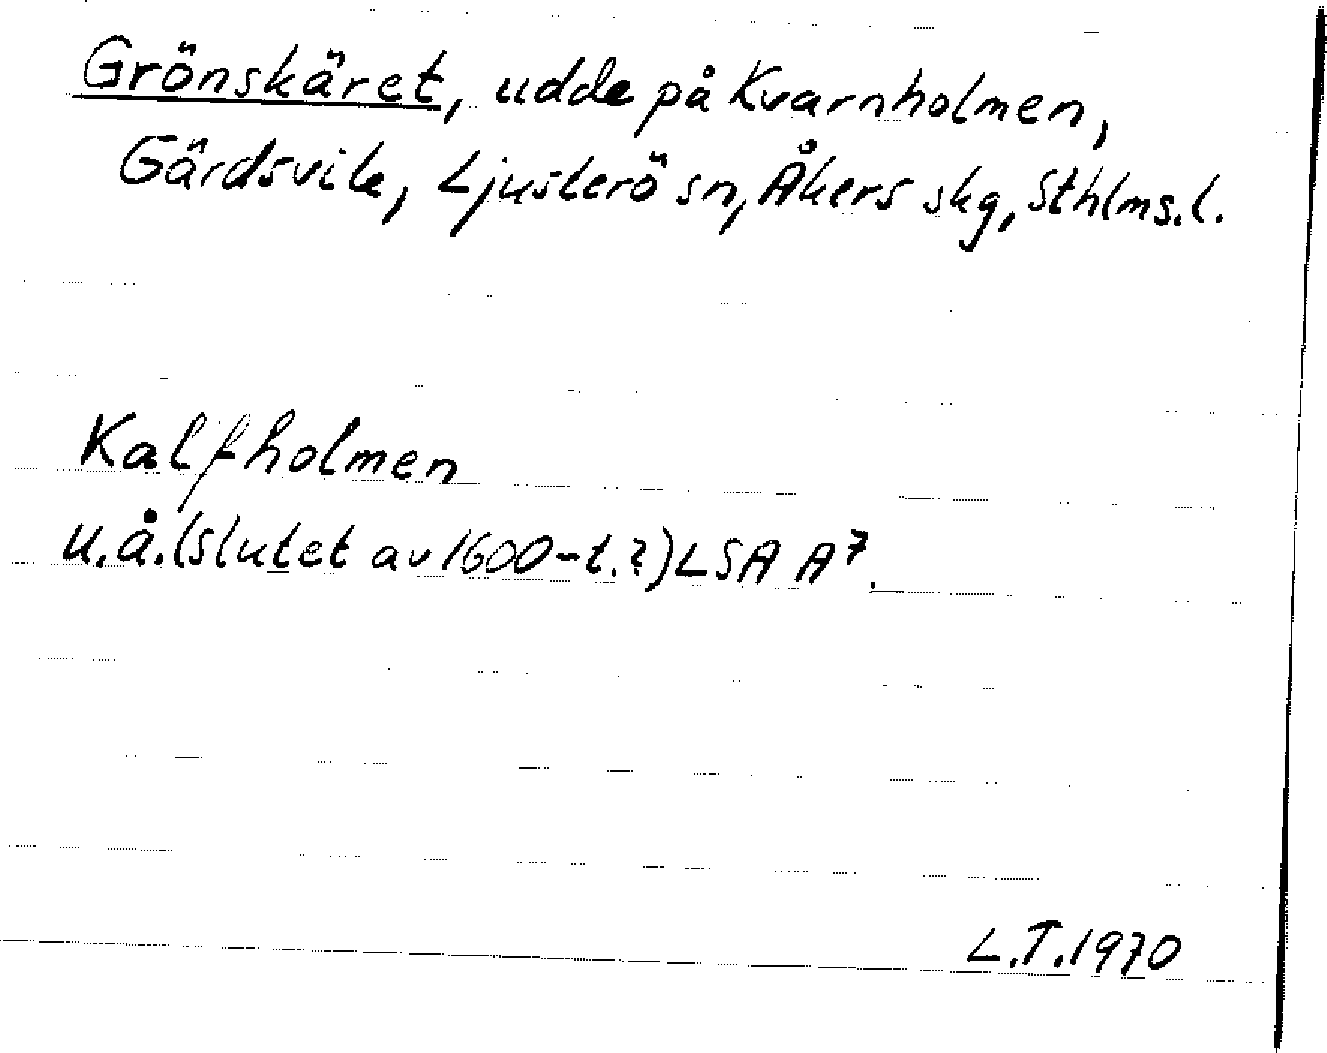 Grönskäret, udde på Kvarnholmen,
Gärdsvik, Ljusterö sn, Åkers skg, Sthlms.l.
Kalfholmen
u.å.(slutet av 1600-t.?) LSA A7.
L.T.1970